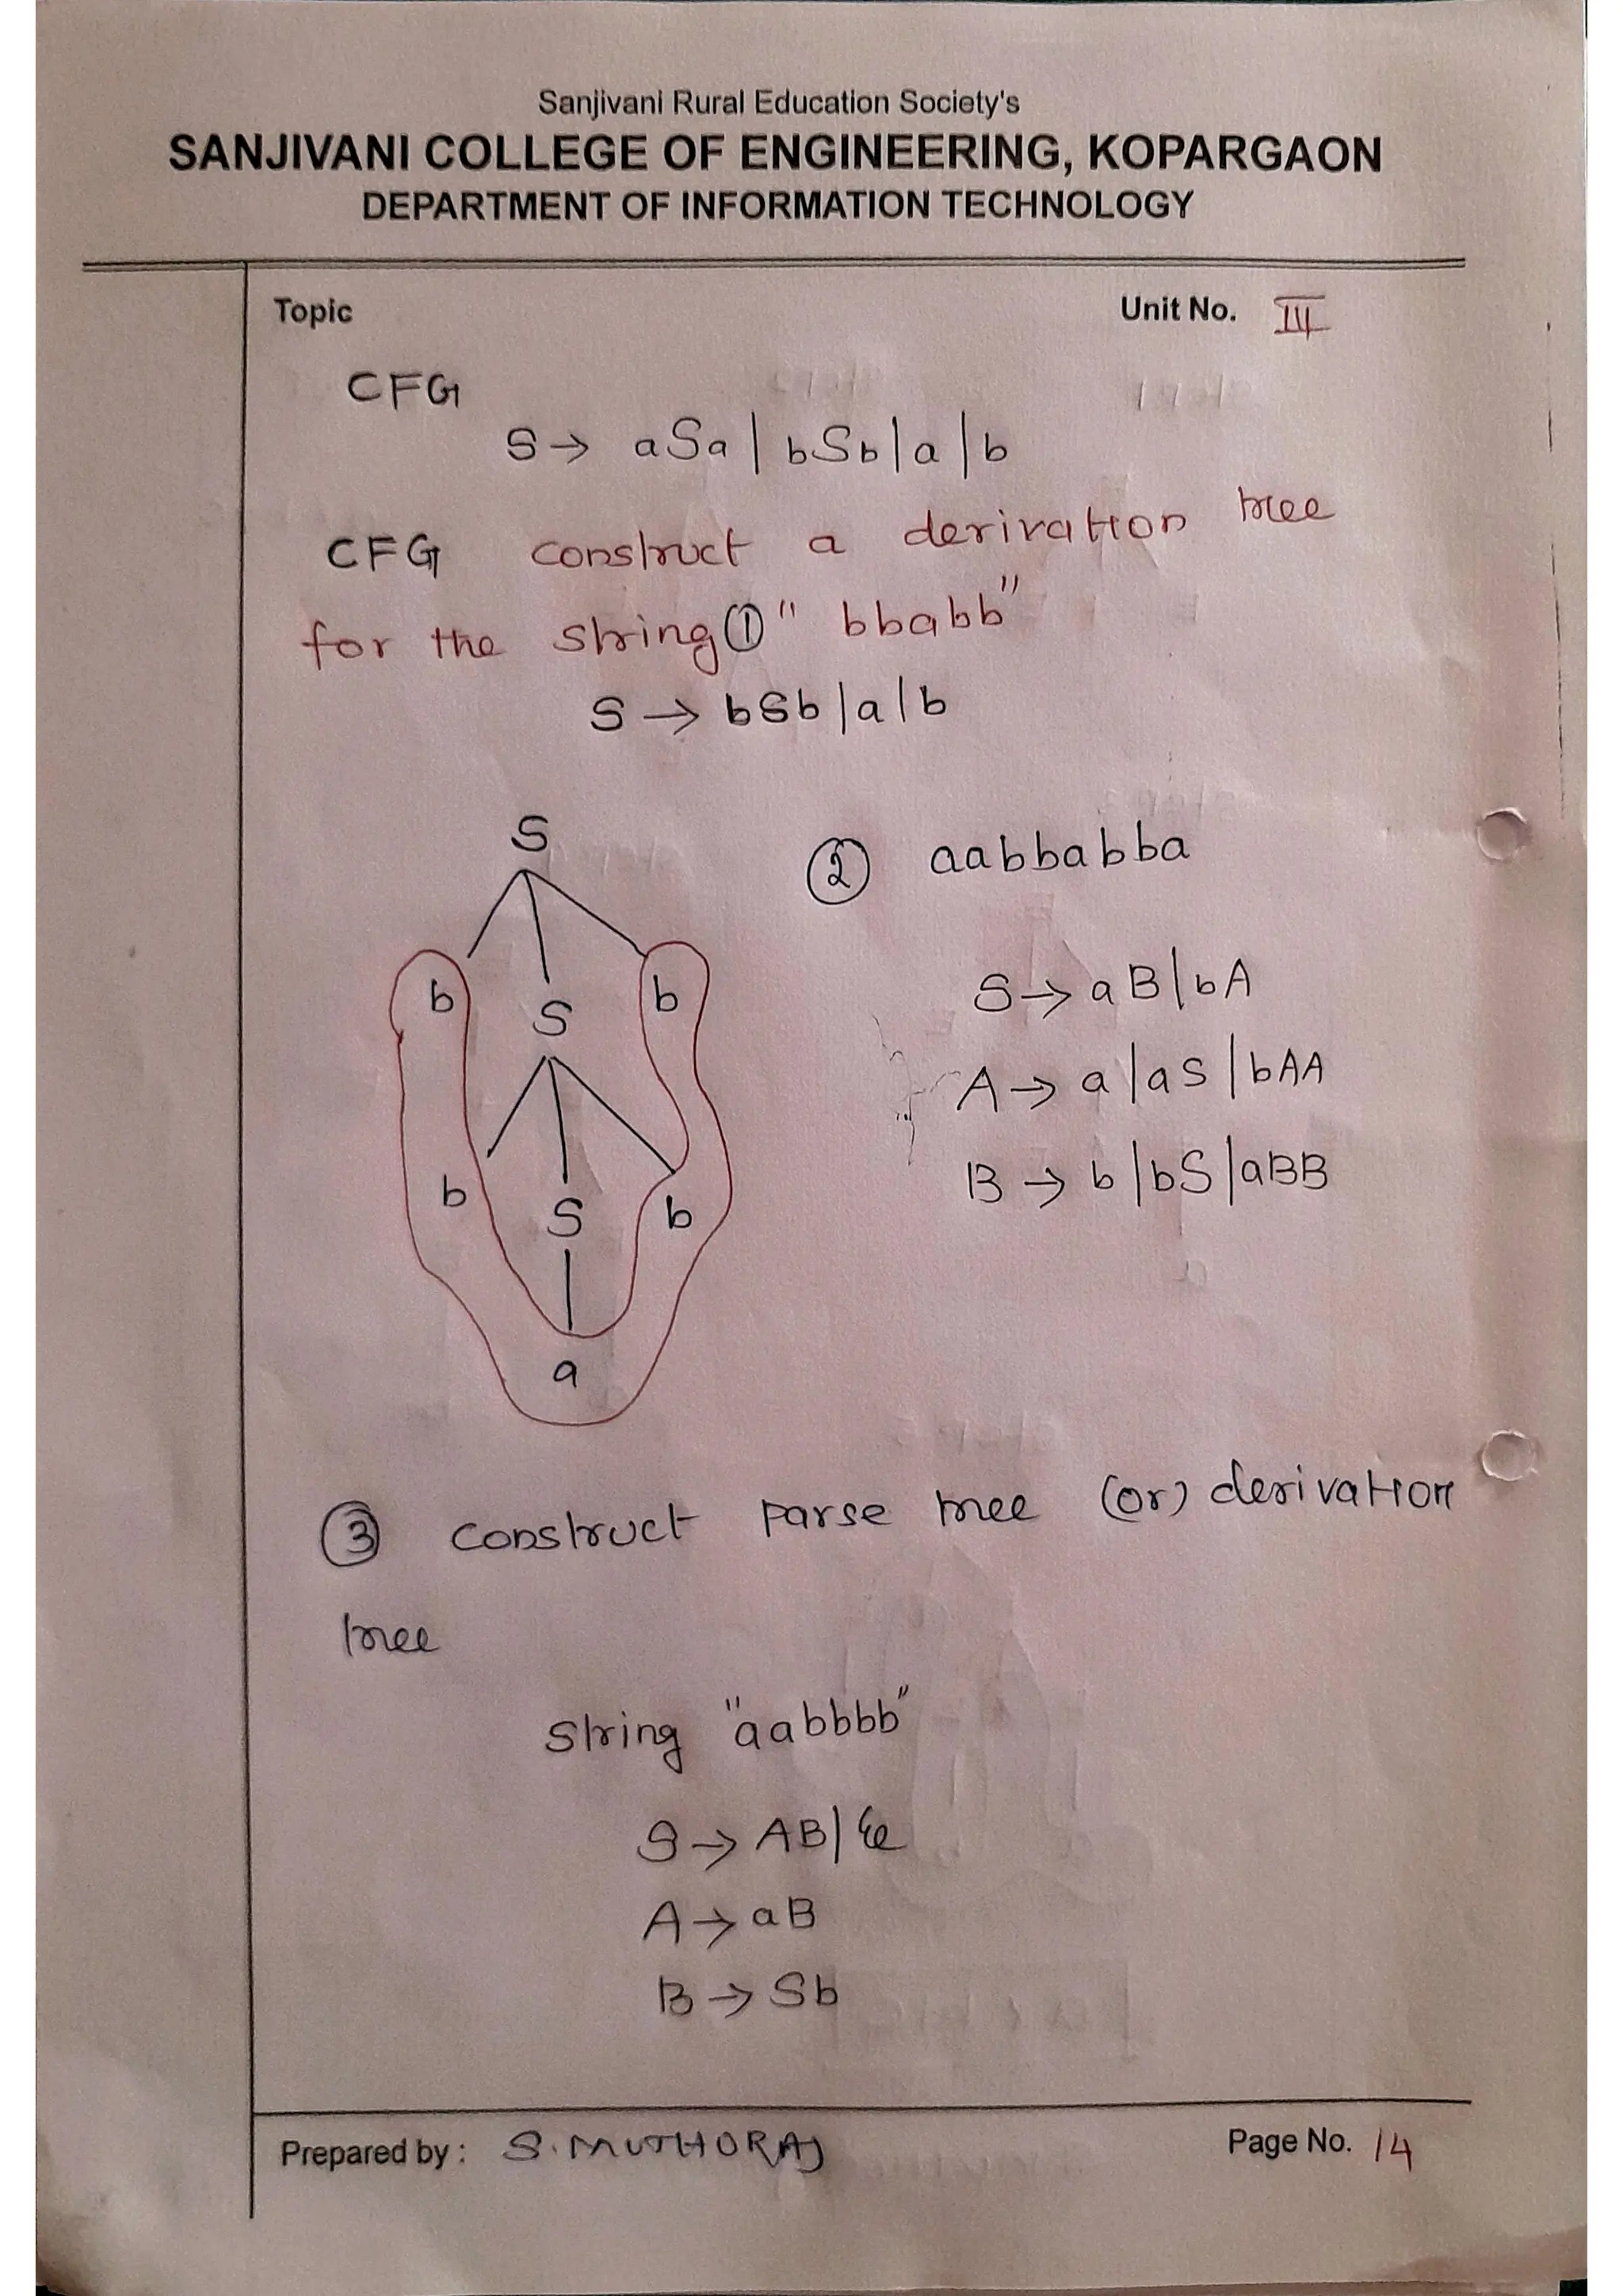 Sanjivani Rural Education Society's
SANJIVANI COLLEGE OF ENGINEERING, KOPARGAON
DEPARTMENT OF INFORMATION TECHNOLOGY
Topic
Unit No. III
CFG
S → aSa | bSb | a | b
CFG construct a derivation tree
for the string ① " bbabb"
S → bSb | a | b
S
b S b
b S b
a
② aabbabba
S → aB | bA
A → a | aS | bAA
B → b | bS | aBB
③ construct parse tree (or) derivation
tree
string "aabbbb"
S → AB |
A → aB
B → Sb
Prepared by : S. MUTHURAJ
Page No. 14